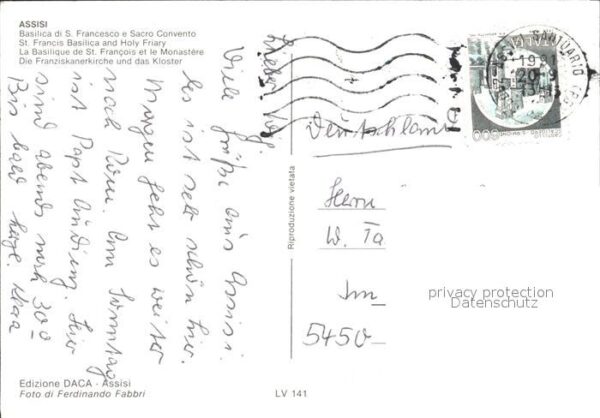 ASSISI
Basilica di S. Francesco e Sacro Convento
St. Francis Basilica and Holy Friary
La Basilique de St. François et le Monastère
Die Franziskanerkirche und das Kloster
Viele Grüße aus Assisi.
Es ist sehr schön hier.
Morgen geht es weiter
nach Rom. Am Sonntag
ist Papst Audienz. Hier
sind abends noch 30°
Bis bald herzl.
Deutschland
Herrn
W. Ta
Im
5450
Riproduzione vietata
privacy protection
Datenschutz
SANTUARIO
1991
Edizione DACA - Assisi
Foto di Ferdinando Fabbri
LV 141